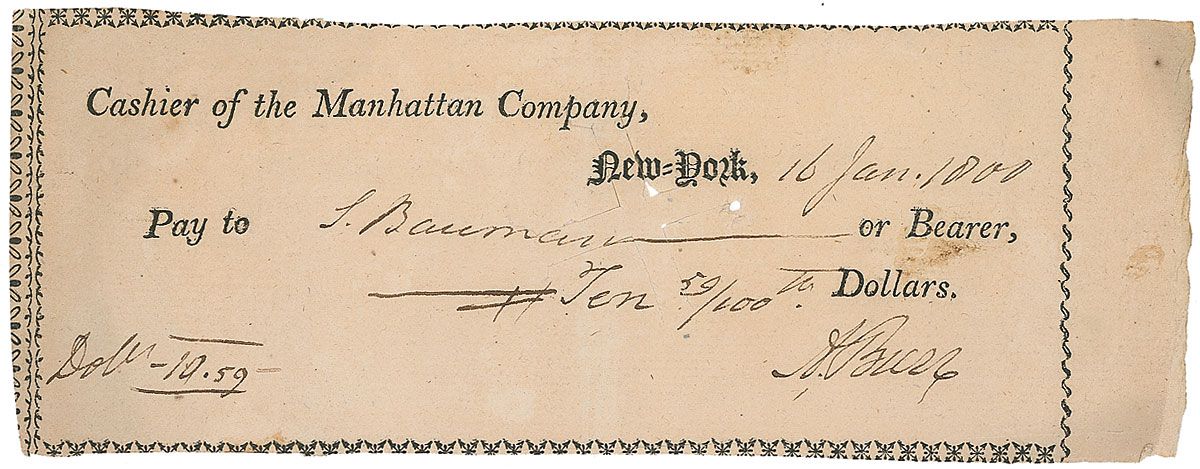 Cashier of the Manhattan Company,
New=York, 16 Jan. 1800
Pay to S. Bauman or Bearer,
Ten 59/100th Dollars.
Dolls - 10.59 -
A. Burr